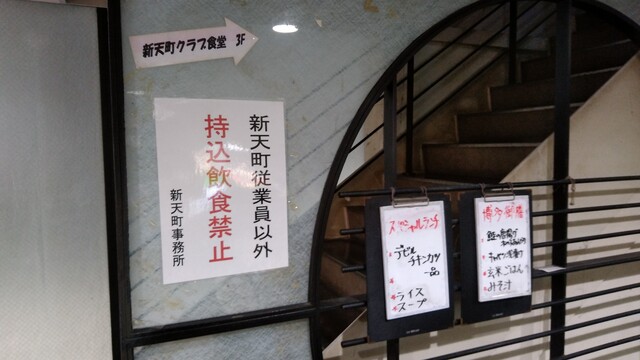 新天町クラブ食堂 3F
新天町従業員以外
持込飲食禁止
新天町事務所
スペシャルランチ
デビル
チキンカツ
一品
ライス
スープ
玄米ごはん
みそ汁